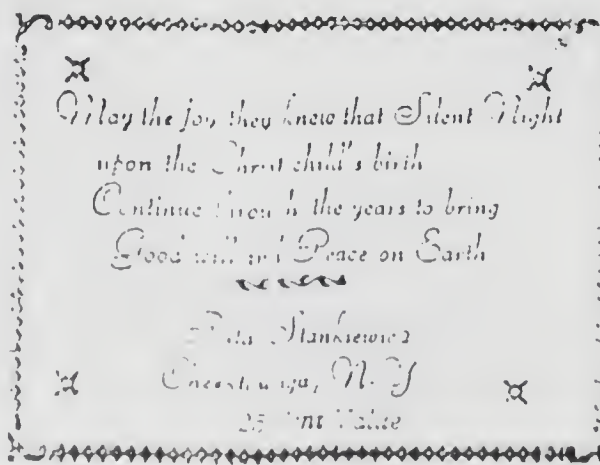 May the joy they knew that Silent Night
upon the Christ child's birth
Continue through the years to bring
Good will and Peace on Earth
Stankiewicz
N. Y.
25 Cent Value